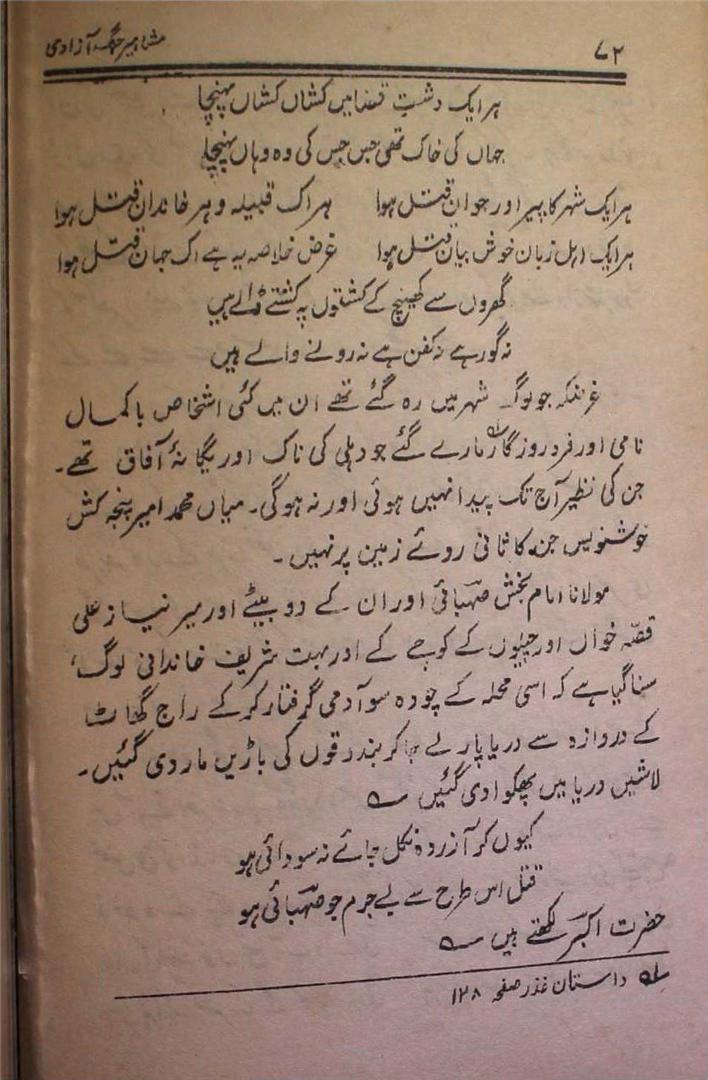 ۷۲ مشاہیر جنگ آزادی
ہر ایک دشتِ قضا میں کشاں کشاں پہنچا
جہاں کی خاک تھی جس جس کی وہ وہاں پہنچا
ہر ایک شہر کا پیر اور جوان قتل ہوا ہر اک قبیلہ و ہر خاندان قتل ہوا
ہر ایک اہل زبان خوش بیان قتل ہوا غرض خلاصہ یہ ہے اک جہان قتل ہوا
گھروں سے کھینچ کے کشتوں پہ کشتے ڈالے ہیں
نہ گور ہے نہ کفن ہے نہ رونے والے ہیں
غرضکہ جو لوگ شہر میں رہ گئے تھے ان میں کئی اشخاص باکمال
نامی اور فرد روزگار مارے گئے جو دہلی کی ناک اور یگانۂ آفاق تھے۔
جن کی نظیر آج تک پیدا نہیں ہوئی اور نہ ہوگی۔ میاں محمد امیر پنجہ کش
خوشنویس جن کا ثانی روئے زمین پر نہیں۔
مولانا امام بخش صہبائی اور ان کے دو بیٹے اور میر نیاز علی
قصّہ خواں اور چیلوں کے کوچے کے اور بہت شریف خاندانی لوگ،
سنا گیا ہے کہ اسی محلہ کے چودہ سو آدمی گرفتار کر کے راج گھاٹ
کے دروازہ سے دریا پار لے جا کر بندوقوں کی باڑیں مار دی گئیں۔
لاشیں دریا میں پھکوا دی گئیں ؎
کیوں کر آزردہ نکل جائے نہ سودائی ہو
قتل اس طرح سے بے جرم جو صہبائی ہو
حضرت اکبرؔ لکھتے ہیں ؎
؎۱ داستان غدر صفحہ ۱۲۸